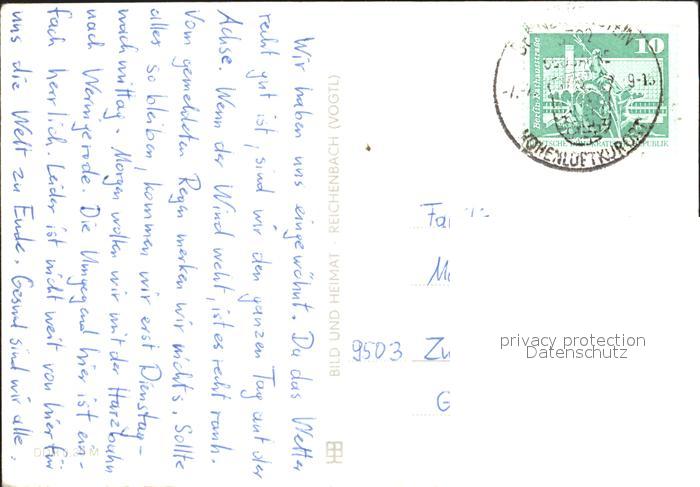 Wir haben uns eingewöhnt. Da das Wetter
recht gut ist, sind wir den ganzen Tag auf der
Achse. Wenn der Wind weht, ist es recht rauh.
Vom gemeldeten Regen merken wir nichts. Sollte
alles so bleiben, kommen wir erst Dienstag-
nachmittag. Morgen wollen wir mit der Harzbahn
nach Wernigerode. Die Umgegend hier ist ein-
fach herrlich. Leider ist nicht weit von hier für
uns die Welt zu Ende. Gesund sind wir alle.
BILD UND HEIMAT · REICHENBACH (VOGTL)
10
Berlin, Rathausstraße
HÖHENLUFTKURORT
Fa
9503 Zw
G
privacy protection
Datenschutz